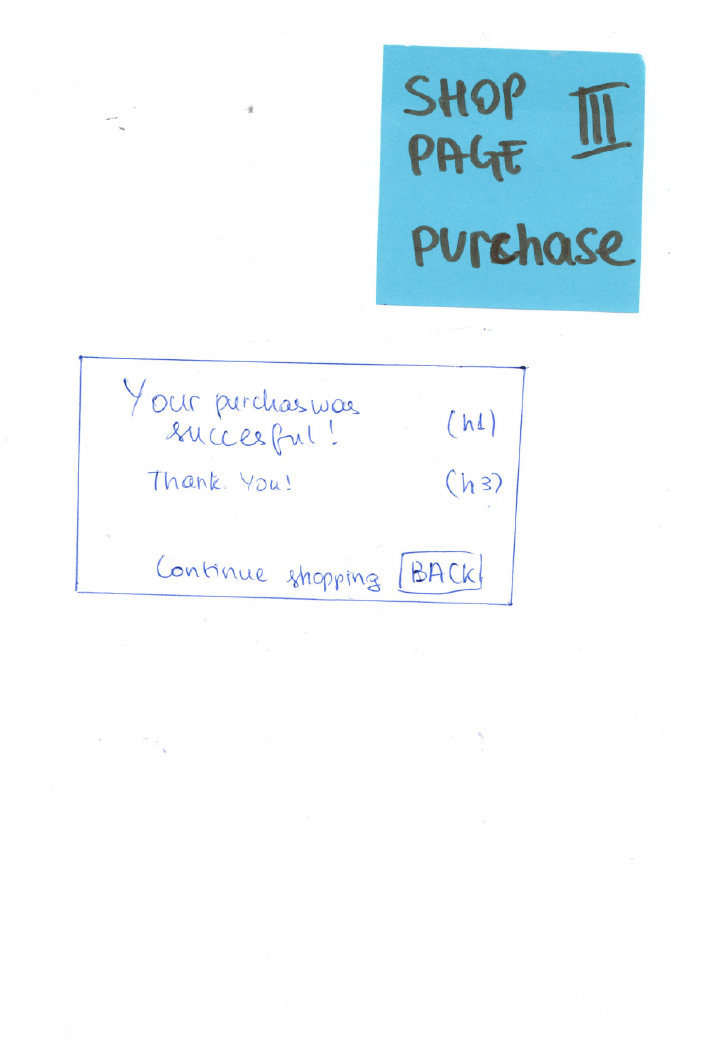 SHOP III
PAGE
purchase
Your purchas was
succesful!
(h1)
Thank You!
(h3)
Continue shopping BACK